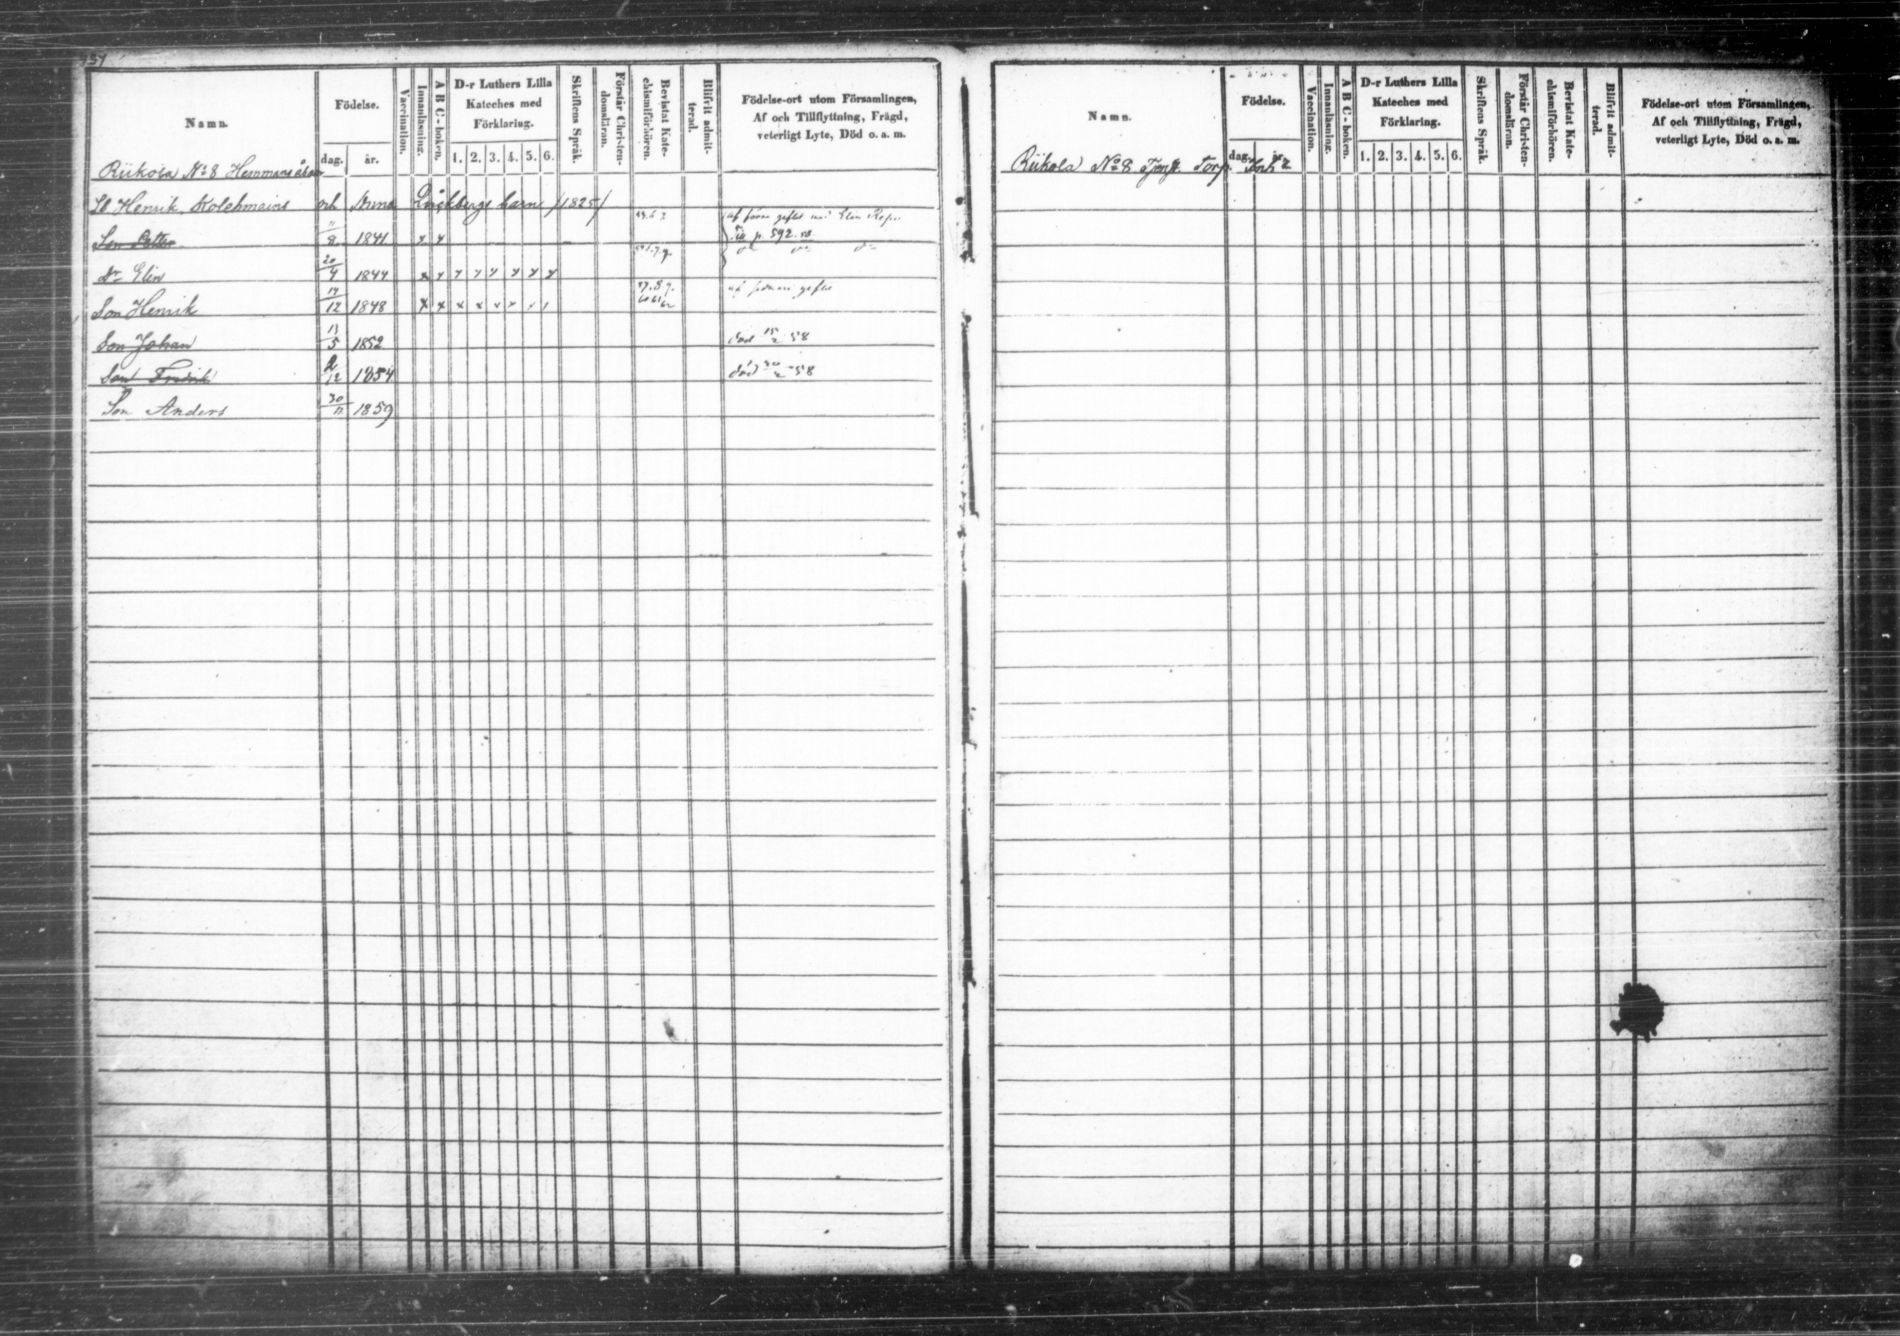 Namn.
Födelse.
dag. år.
Vaccination.
Innanläsning.
A B C - boken.
D-r Luthers Lilla
Kateches med
Förklaring.
1. 2. 3. 4. 5. 6.
Skriftens Språk.
Förstår Christen-
domsläran.
Bevistat Kate-
chismiförhören.
Blifvit admit-
terad.
Födelse-ort utom Församlingen,
Af och Tillflyttning, Frägd,
veterligt Lyte, Död o. a. m.
Riikola No 8 Hemmans
Henrik Kolehmains och Anna barn /1825/
Son Petter 8 1841 x x
p. 592.
Dr Elin 20/4 1844 x x x x x x x x
Son Henrik 14/12 1848 x x x x x x
Son Johan 13/5 1852 död 15/2 58
Son Fredrik 12 1854 död 58
Son Anders 30/11 1859
Namn.
Födelse.
dag. år.
Vaccination.
Innanläsning.
A B C - boken.
D-r Luthers Lilla
Kateches med
Förklaring.
1. 2. 3. 4. 5. 6.
Skriftens Språk.
Förstår Christen-
domsläran.
Bevistat Kate-
chismiförhören.
Blifvit admit-
terad.
Födelse-ort utom Församlingen,
Af och Tillflyttning, Frägd,
veterligt Lyte, Död o. a. m.
Riikola No 8 Torp